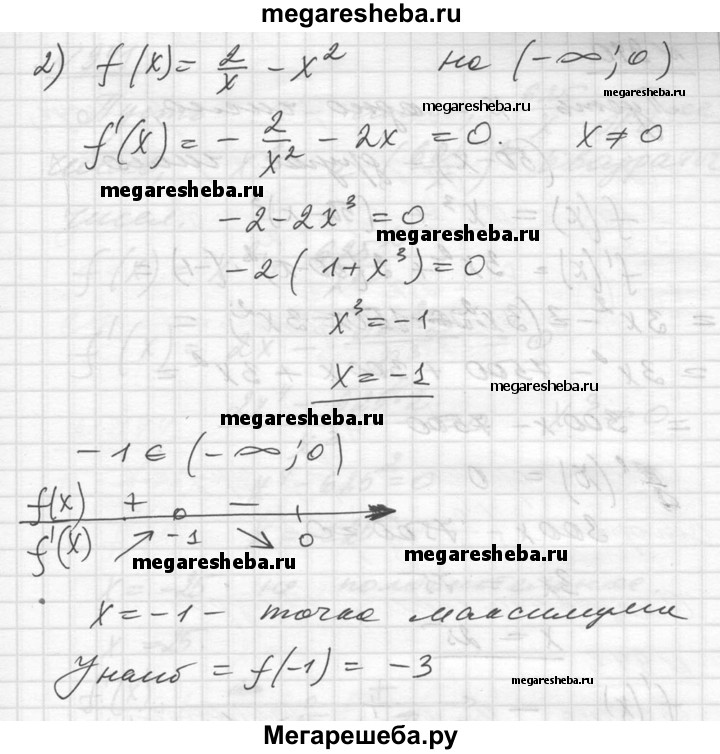 megaresheba.ru
2) f(x) = 2/x - x² на (-∞; 0)
megaresheba.ru
megaresheba.ru
f'(x) = - 2/x² - 2x = 0. x ≠ 0
megaresheba.ru
-2 - 2x³ = 0
megaresheba.ru
-2 ( 1 + x³ ) = 0
x³ = -1
x = -1
megaresheba.ru
megaresheba.ru
-1 ∈ (-∞; 0)
f(x) + -
f'(x) ↗ -1 ↘ 0
megaresheba.ru
megaresheba.ru
x = -1 - точка максимума
Унаиб = f(-1) = -3
megaresheba.ru
Мегарешеба.ру